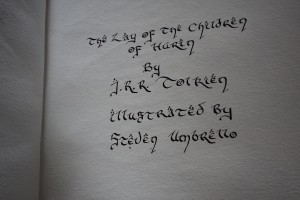 The Lay of the Children
of Hurin
By
J.R.R. Tolkien
illustrated By
Steven Umbrello